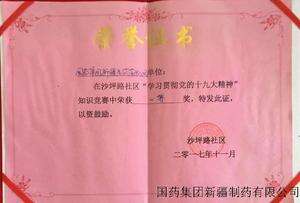 荣誉证书
国药集团新疆制药有限公司单位:
在沙坪路社区“学习贯彻党的十九大精神”
知识竞赛中荣获 一等 奖,特发此证,
以资鼓励。
沙坪路社区
二〇一七年十一月
国药集团新疆制药有限公司